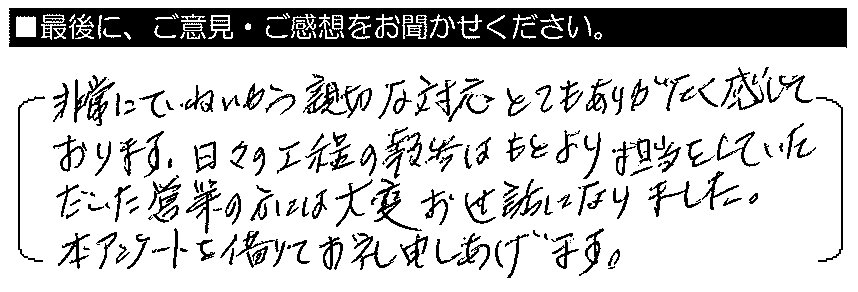 ■最後に、ご意見・ご感想をお聞かせください。
非常にていねいかつ親切な対応とてもありがたく感じて
おります。日々の工程の報告はもとより担当をしていた
だいた営業の方には大変お世話になりました。
本アンケートを借りてお礼申しあげます。